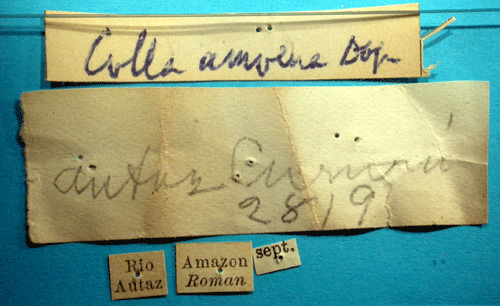 Colla amoena Dop.
autaz Cururu
2819
Rio
Autaz
Amazon
Roman
sept.